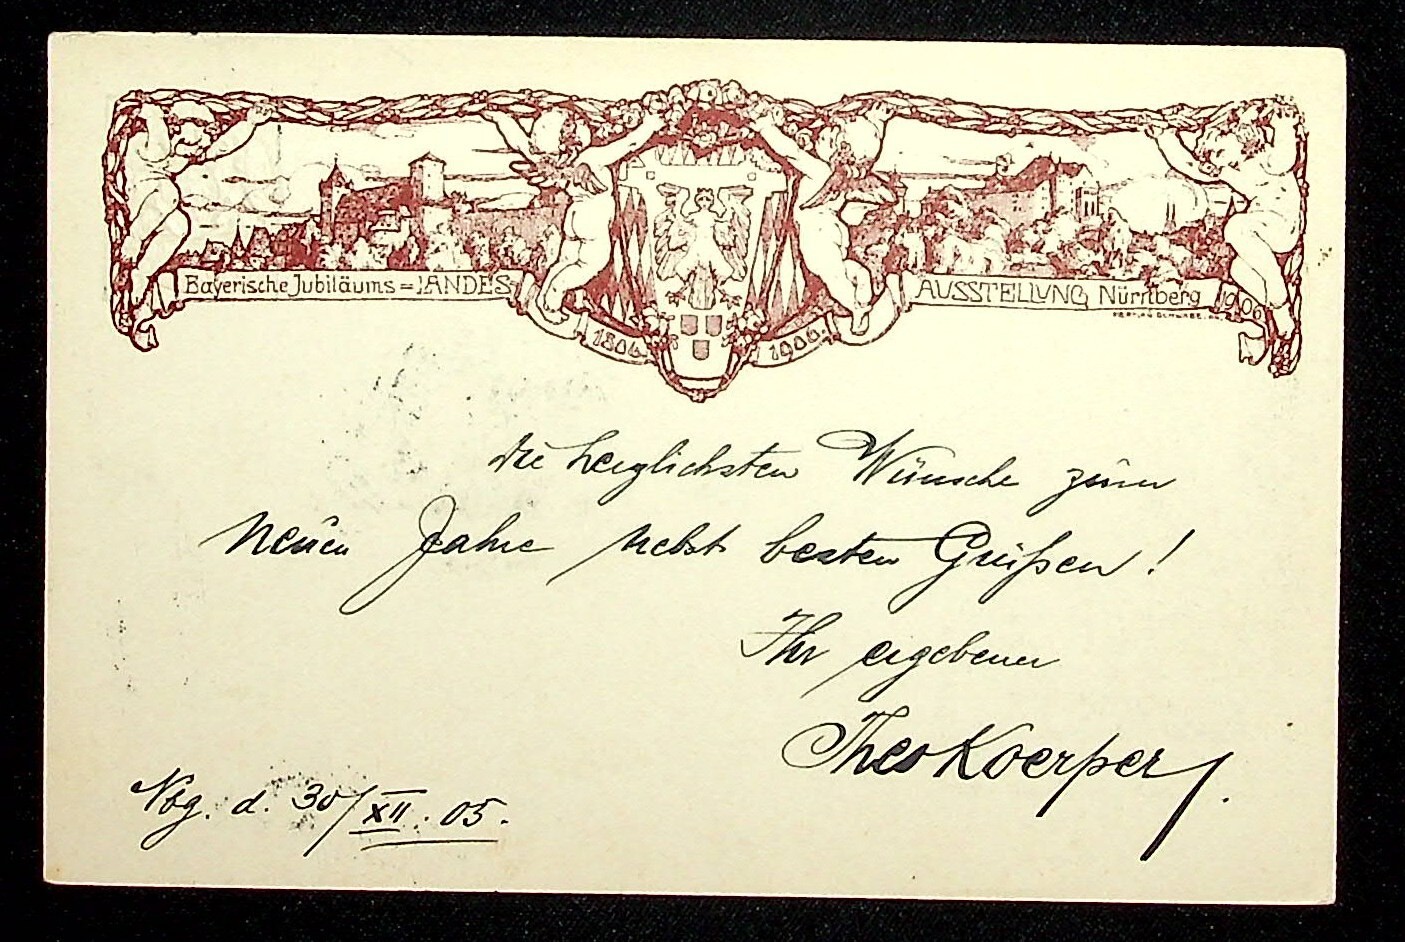 Bayerische Jubiläums=LANDES
AUSSTELLUNG Nürnberg 1906
1806
1906
die herzlichsten Wünsche zum
neuen Jahre nebst besten Grüßen!
Ihr ergebener
Theo Koerper.
Nbg. d. 30/XII. 05.